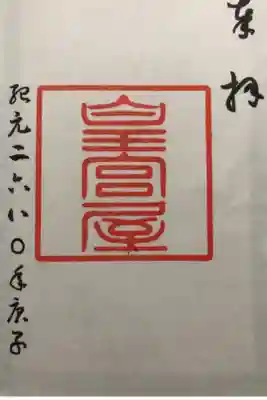 奉拝
皇宮屋
紀元二六八〇年庚子